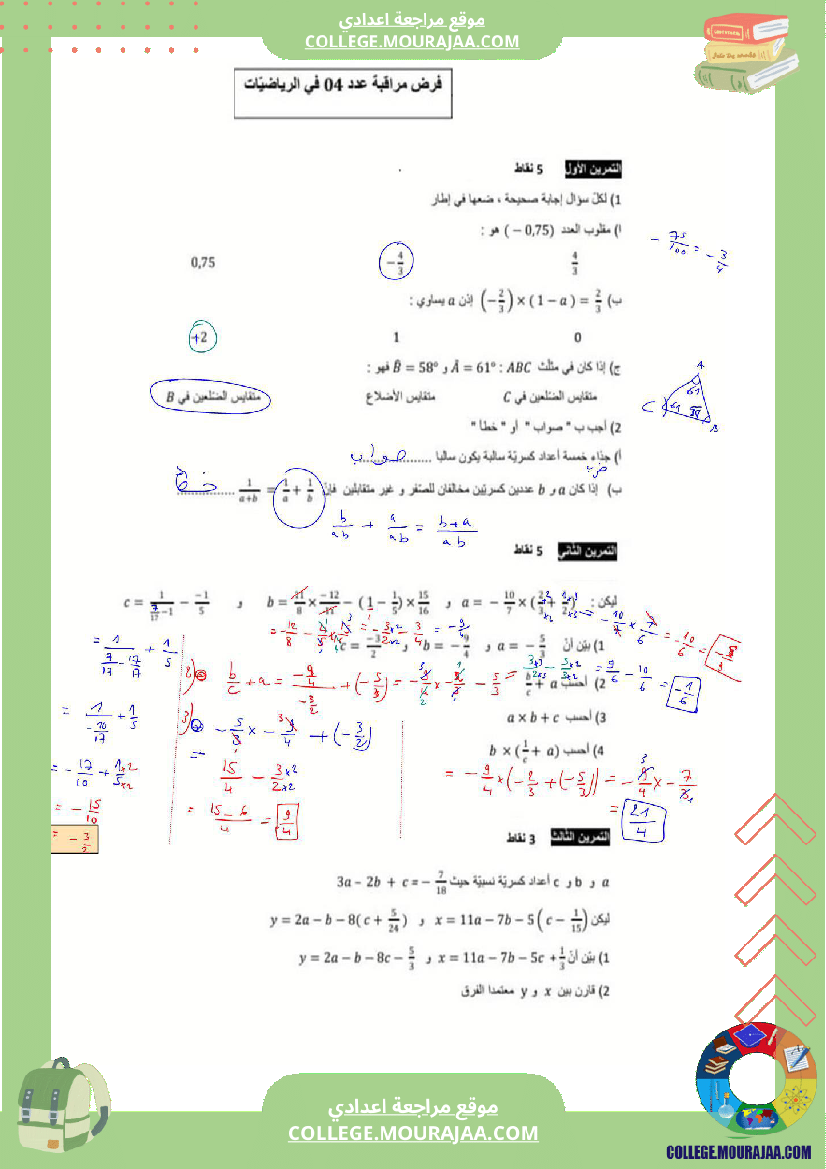 موقع مراجعة اعدادي
COLLEGE.MOURAJAA.COM
فرض مراقبة عدد 04 في الرياضيّات
التمرين الأول 5 نقاط
1) لكلّ سؤال إجابة صحيحة ، ضعها في إطار
ا) مقلوب العدد (−0,75) هو :
− 75/100 = − 3/4
4/3 −4/3 0,75
ب) (−2/3) × (1 − a) = 2/3 إذن a يساوي :
0 1 +2
ج) إذا كان في مثلّث ABC : Â = 61° و B̂ = 58° فهو :
متقايس الضّلعين في C متقايس الأضلاع متقايس الضّلعين في B
A
61
C
B
2) أجب ب " صواب " أو " خطأ "
أ) جذاء خمسة أعداد كسريّة سالبة يكون سالبا .................. صواب
ب) إذا كان a و b عددين كسريّين مخالفان للصّفر و غير متقابلين فإنّ 1/a + 1/b = 1/(a+b) ............... خطأ
b/ab + a/ab = (b+a)/ab
التمرين الثاني 5 نقاط
ليكن : a = −10/7 × (2/3 + 1/2) و b = 11/8 × −12/11 − (1 − 1/5) × 15/16 و c = 1/(7/17 −1) − −1/5
1) بيّن أنّ a = −5/3 و b = −9/4 و c = −3/2
2) أحسب b/c + a
b/c + a = (−9/4)/(−3/2) + (−5/3)
= 9/6 − 10/6 = −1/6
3) أحسب a × b + c
− 5/3 × − 9/4 + (−3/2)
= 15/4 − 3×2/2×2
= (15 − 6)/4 = 9/4
4) أحسب b × (1/c + a)
= − 9/4 × (− 2/3 + (−5/3)) = − 9/4 × − 7/3
= 21/4
= 1/(7/17 − 17/17) + 1/5
= 1/(−10/17) + 1/5
= − 17/10 + 1×2/5×2
= − 15/10
= − 3/2
التمرين الثالث 3 نقاط
a و b و c أعداد كسريّة نسبيّة حيث 3a − 2b + c = − 7/18
ليكن x = 11a − 7b − 5(c − 1/15) و y = 2a − b − 8(c + 5/24)
1) بيّن أنّ x = 11a − 7b − 5c + 1/3 و y = 2a − b − 8c − 5/3
2) قارن بين x و y معتمدا الفرق
موقع مراجعة اعدادي
COLLEGE.MOURAJAA.COM
COLLEGE.MOURAJAA.COM